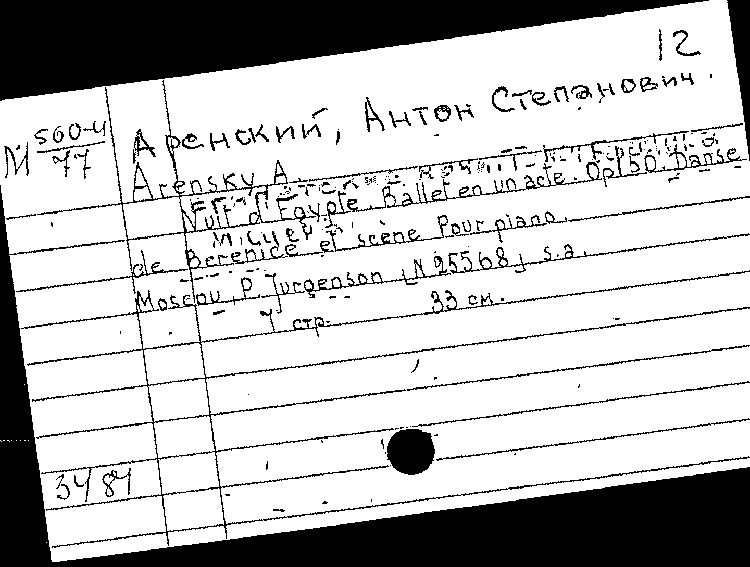 12
М 560-4
77
Аренский, Антон Степанович.
Arensky A.
Nuit d'Egypte. Ballet en un acte. Op. 50. Danse
de Berenice et scène Pour piano.
Moscou, P. Jurgenson [N 25568] s.a.
7 стр. 33 см.
3484